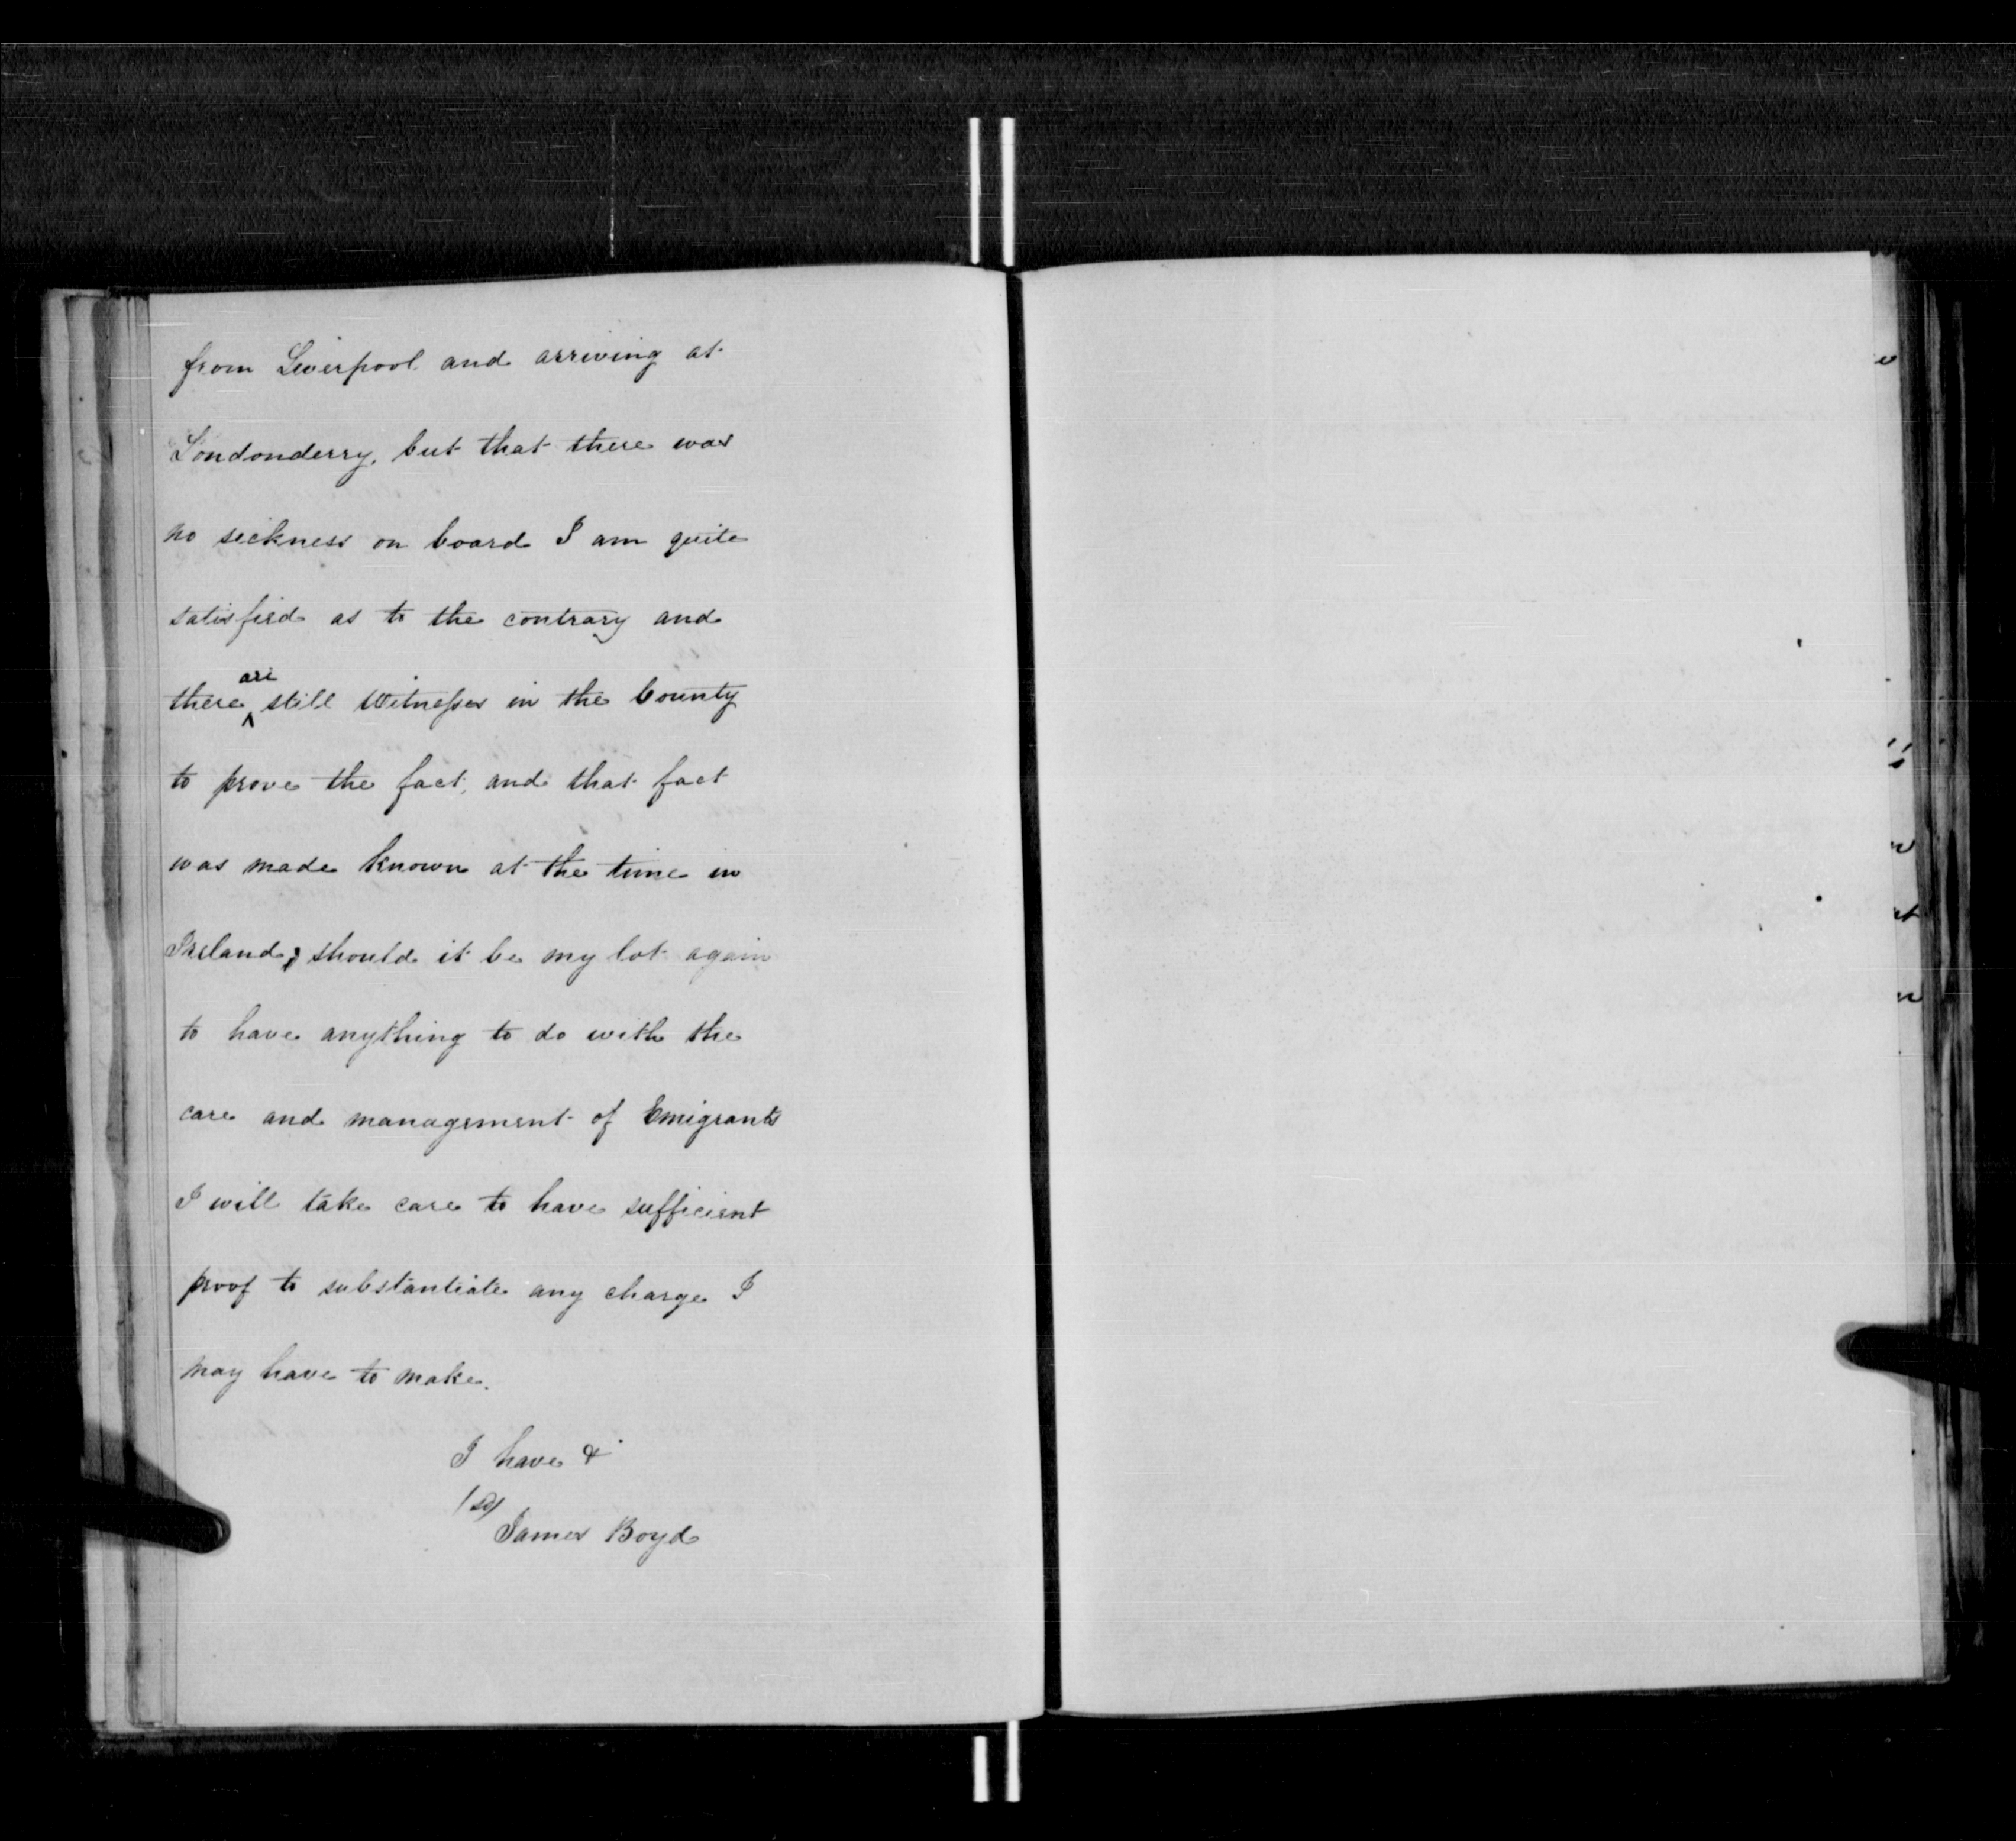 from Liverpool and arriving at
Londonderry, but that there was
no sickness on board I am quite
satisfied as to the contrary and
there are still Witnesses in the County
to prove the fact, and that fact
was made known at the time in
Ireland; should it be my lot again
to have anything to do with the
care and management of Emigrants
I will take care to have sufficient
proof to substantiate any charge I
may have to make.
I have &
/sd/
James Boyd